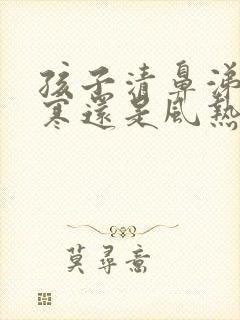 孩子清鼻涕
寒還是風熱
莫尋啻